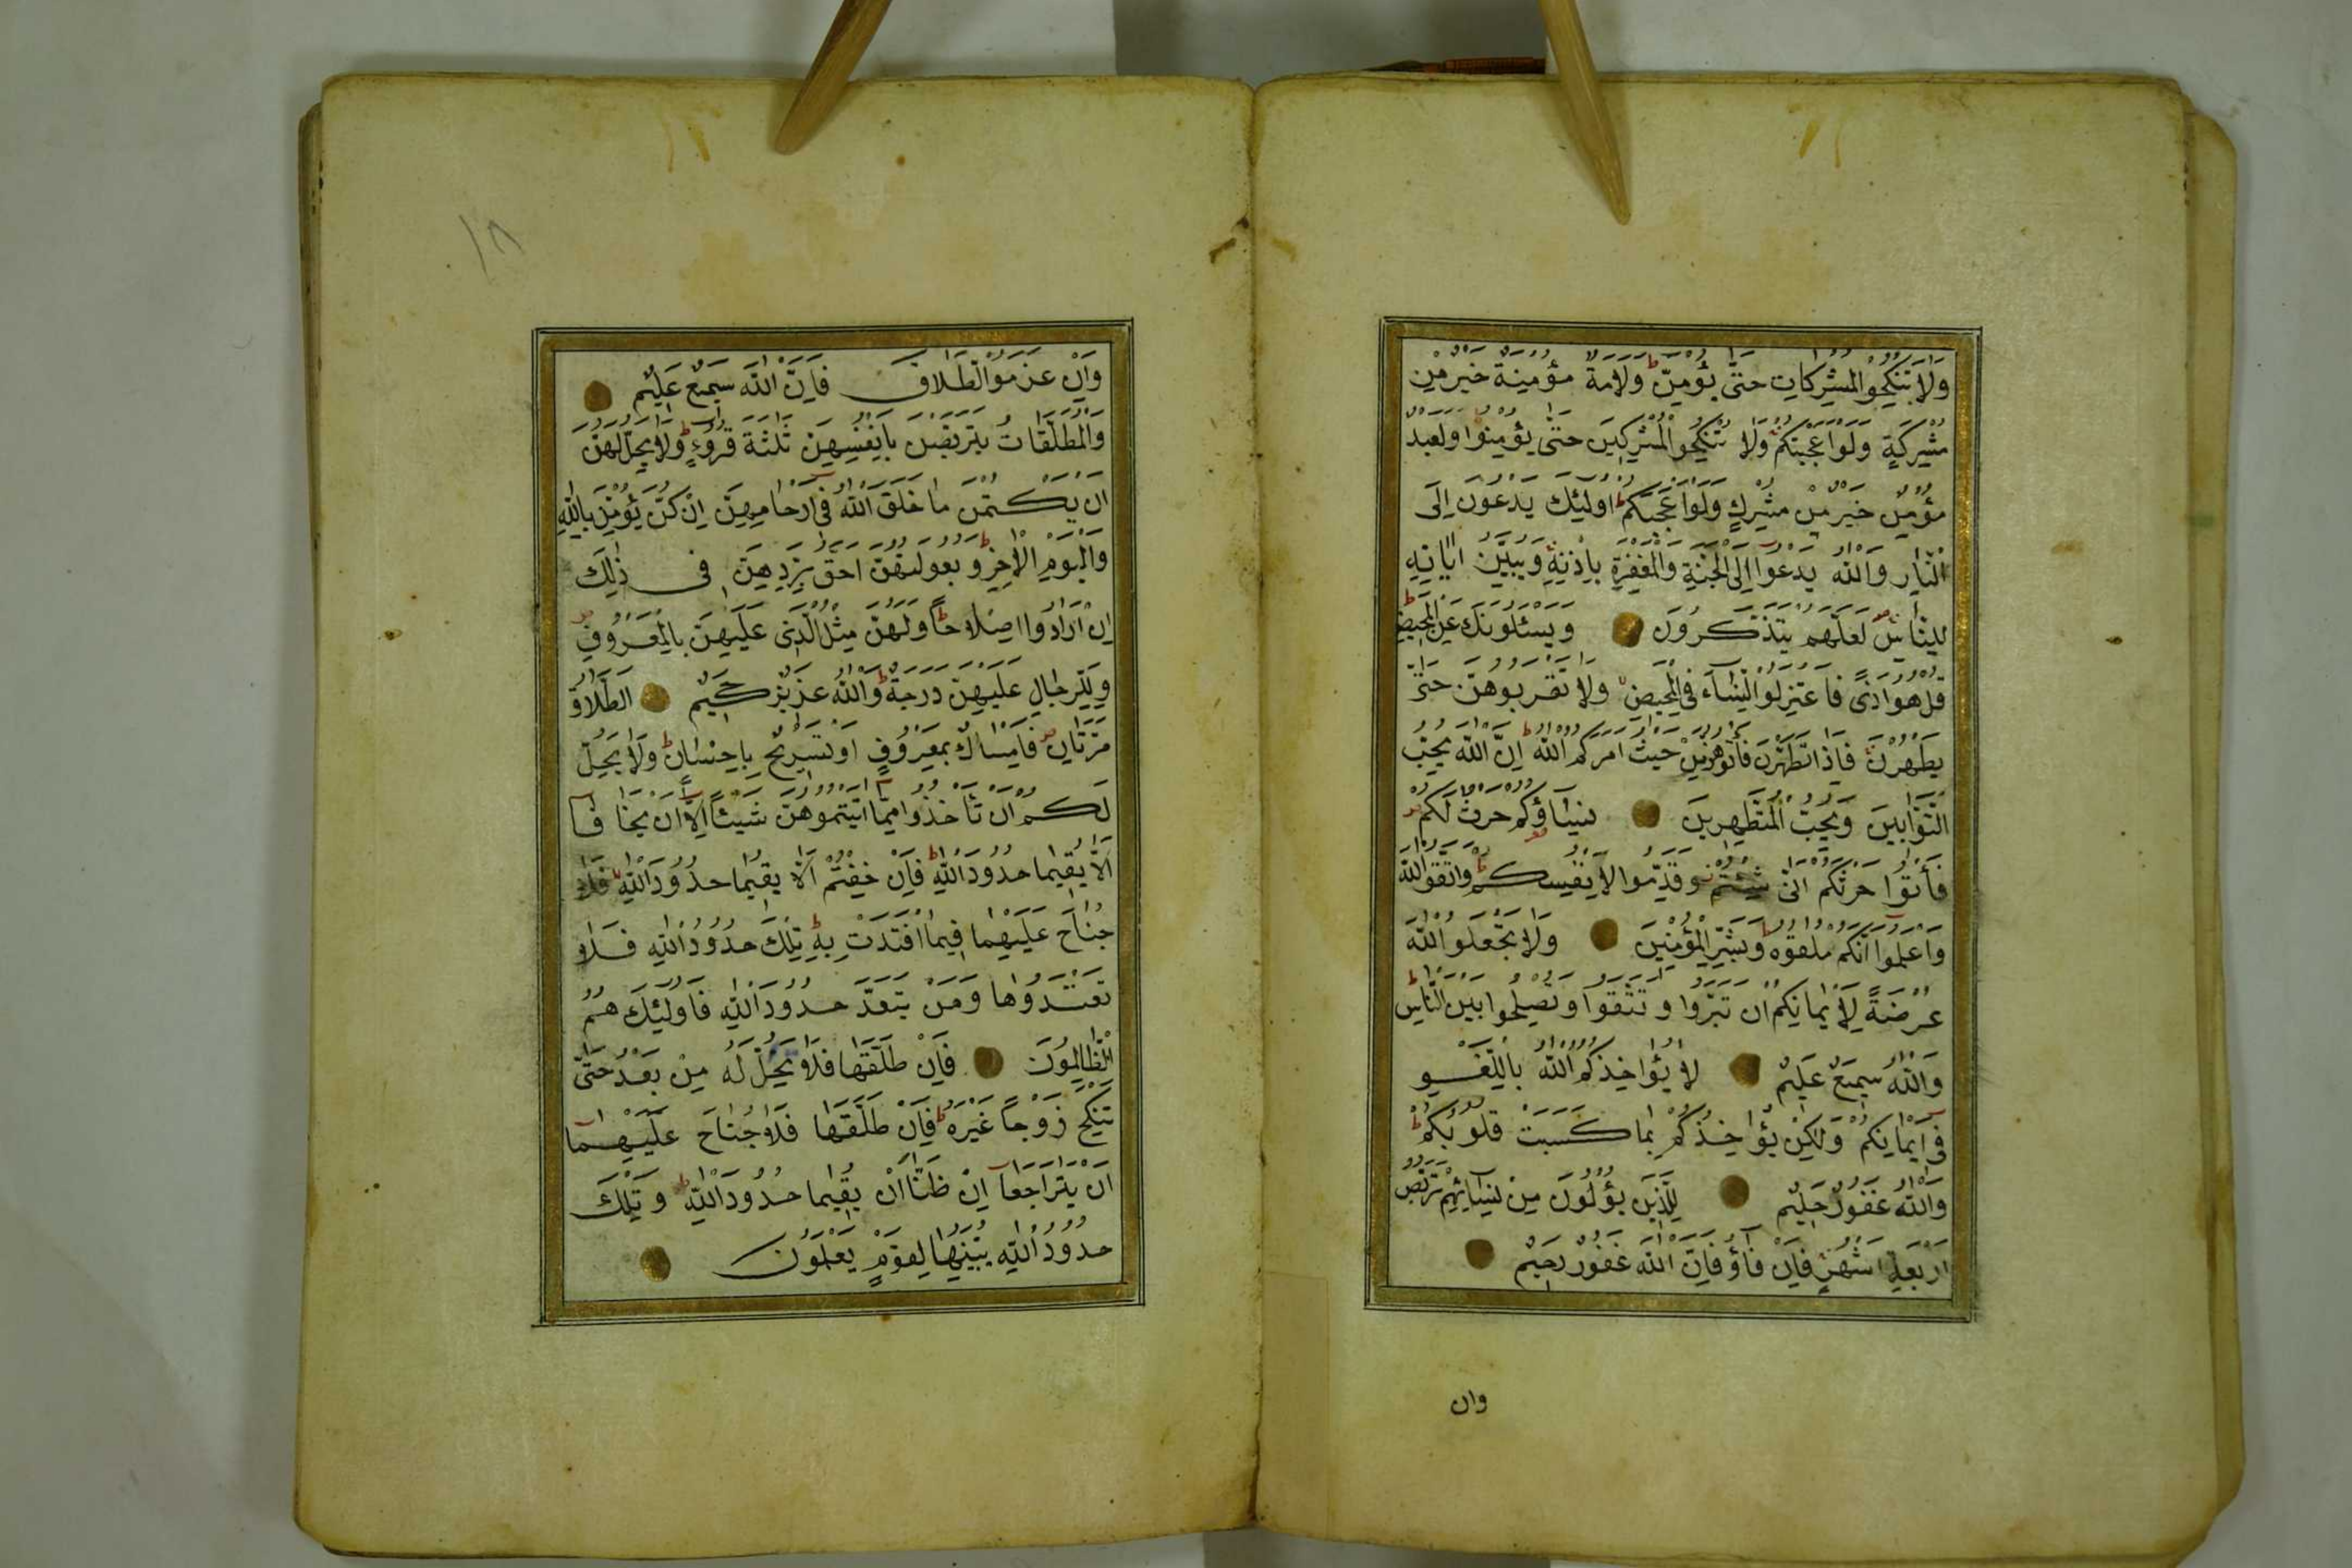 وَلَا تَنْكِحُوا الْمُشْرِكَاتِ حَتّٰى يُؤْمِنَّ ط وَلَاَمَةٌ مُؤْمِنَةٌ خَيْرٌ مِنْ
مُشْرِكَةٍ وَلَوْ اَعْجَبَتْكُمْ وَلَا تُنْكِحُوا الْمُشْرِكِينَ حَتّٰى يُؤْمِنُوا وَلَعَبْدٌ
مُؤْمِنٌ خَيْرٌ مِنْ مُشْرِكٍ وَلَوْ اَعْجَبَكُمْ ط اُولٰئِكَ يَدْعُونَ اِلَى
النَّارِ وَاللّٰهُ يَدْعُوا اِلَى الْجَنَّةِ وَالْمَغْفِرَةِ بِاِذْنِهِ وَيُبَيِّنُ اٰيَاتِهِ
لِلنَّاسِ لَعَلَّهُمْ يَتَذَكَّرُونَ وَيَسْئَلُونَكَ عَنِ الْمَحِيضِ ط
قُلْ هُوَ اَذًى فَاعْتَزِلُوا النِّسَآءَ فِى الْمَحِيضِ وَلَا تَقْرَبُوهُنَّ حَتّٰى
يَطْهُرْنَ فَاِذَا تَطَهَّرْنَ فَأْتُوهُنَّ مِنْ حَيْثُ اَمَرَكُمُ اللّٰهُ ط اِنَّ اللّٰهَ يُحِبُّ
التَّوَّابِينَ وَيُحِبُّ الْمُتَطَهِّرِينَ نِسَاؤُكُمْ حَرْثٌ لَكُمْ
فَأْتُوا حَرْثَكُمْ اَنّٰى شِئْتُمْ وَقَدِّمُوا لِاَنْفُسِكُمْ ط وَاتَّقُوا اللّٰهَ
وَاعْلَمُوا اَنَّكُمْ مُلٰقُوهُ ط وَبَشِّرِ الْمُؤْمِنِينَ وَلَا تَجْعَلُوا اللّٰهَ
عُرْضَةً لِاَيْمَانِكُمْ اَنْ تَبَرُّوا وَتَتَّقُوا وَتُصْلِحُوا بَيْنَ النَّاسِ ط
وَاللّٰهُ سَمِيعٌ عَلِيمٌ لَا يُؤَاخِذُكُمُ اللّٰهُ بِاللَّغْوِ
فِى اَيْمَانِكُمْ وَلٰكِنْ يُؤَاخِذُكُمْ بِمَا كَسَبَتْ قُلُوبُكُمْ ط
وَاللّٰهُ غَفُورٌ حَلِيمٌ لِلَّذِينَ يُؤْلُونَ مِنْ نِسَائِهِمْ تَرَبُّصُ
اَرْبَعَةِ اَشْهُرٍ فَاِنْ فَآؤُ فَاِنَّ اللّٰهَ غَفُورٌ رَحِيمٌ
وان
١٨
وَاِنْ عَزَمُوا الطَّلَاقَ فَاِنَّ اللّٰهَ سَمِيعٌ عَلِيمٌ
وَالْمُطَلَّقَاتُ يَتَرَبَّصْنَ بِاَنْفُسِهِنَّ ثَلٰثَةَ قُرُوءٍ ط وَلَا يَحِلُّ لَهُنَّ
اَنْ يَكْتُمْنَ مَا خَلَقَ اللّٰهُ فِى اَرْحَامِهِنَّ اِنْ كُنَّ يُؤْمِنَّ بِاللّٰهِ
وَالْيَوْمِ الْاٰخِرِ ط وَبُعُولَتُهُنَّ اَحَقُّ بِرَدِّهِنَّ فِى ذٰلِكَ
اِنْ اَرَادُوا اِصْلَاحًا ط وَلَهُنَّ مِثْلُ الَّذِى عَلَيْهِنَّ بِالْمَعْرُوفِ
وَلِلرِّجَالِ عَلَيْهِنَّ دَرَجَةٌ ط وَاللّٰهُ عَزِيزٌ حَكِيمٌ اَلطَّلَاقُ
مَرَّتَانِ فَاِمْسَاكٌ بِمَعْرُوفٍ اَوْ تَسْرِيحٌ بِاِحْسَانٍ ط وَلَا يَحِلُّ
لَكُمْ اَنْ تَأْخُذُوا مِمَّا اٰتَيْتُمُوهُنَّ شَيْئًا اِلَّا اَنْ يَخَافَا
اَلَّا يُقِيمَا حُدُودَ اللّٰهِ ط فَاِنْ خِفْتُمْ اَلَّا يُقِيمَا حُدُودَ اللّٰهِ فَلَا
جُنَاحَ عَلَيْهِمَا فِيمَا افْتَدَتْ بِهِ ط تِلْكَ حُدُودُ اللّٰهِ فَلَا
تَعْتَدُوهَا وَمَنْ يَتَعَدَّ حُدُودَ اللّٰهِ فَاُولٰئِكَ هُمُ
الظَّالِمُونَ فَاِنْ طَلَّقَهَا فَلَا تَحِلُّ لَهُ مِنْ بَعْدُ حَتّٰى
تَنْكِحَ زَوْجًا غَيْرَهُ ط فَاِنْ طَلَّقَهَا فَلَا جُنَاحَ عَلَيْهِمَا
اَنْ يَتَرَاجَعَا اِنْ ظَنَّا اَنْ يُقِيمَا حُدُودَ اللّٰهِ ط وَتِلْكَ
حُدُودُ اللّٰهِ يُبَيِّنُهَا لِقَوْمٍ يَعْلَمُونَ